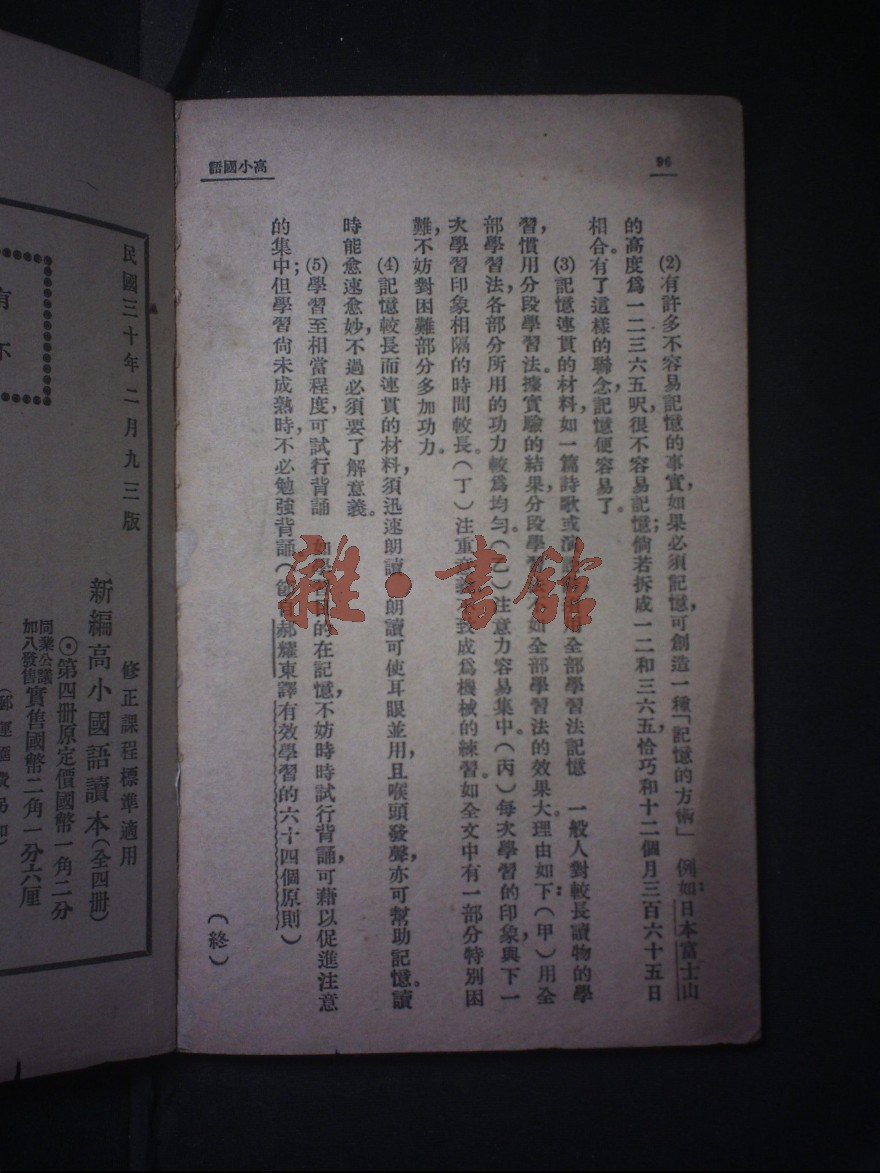 96
高小國語
(2)有許多不容易記憶的事實，如果必須記憶，可創造一種「記憶的方術」 例如：日本富士山
的高度爲一二三六五呎，很不容易記憶；倘若拆成一二和三六五，恰巧和十二個月三百六十五日
相合。有了這樣的聯念，記憶便容易了。
(3)記憶連貫的材料，如一篇詩歌或演 用全部學習法記憶 一般人對較長讀物的學
習，慣用分段學習法。據實驗的結果，分段學習 如全部學習法的效果大。理由如下：(甲)用全
部學習法，各部分所用的功力較爲均勻。(乙)注意力容易集中。(丙)每次學習的印象，與下一
次學習印象相隔的時間較長。(丁)注重 致成爲機械的練習。如全文中有一部分特別困
難，不妨對困難部分多加功力。
(4)記憶較長而連貫的材料，須迅速朗讀 朗讀可使耳眼並用，且喉頭發聲，亦可幫助記憶。讀
時能愈速愈妙，不過必須要了解意義。
(5)學習至相當程度，可試行背誦 如學 目的在記憶，不妨時時試行背誦，可藉以促進注意
的集中；但學習尙未成熟時，不必勉強背誦。(節自郝耀東譯有效學習的六十四個原則)
(終)
雜·書館
修正課程標準適用
新編高小國語讀本(全四册)
⊙第四册原定價國幣一角二分
同業公議
加八發售
實售國幣二角一分六厘
民國三十年二月九三版